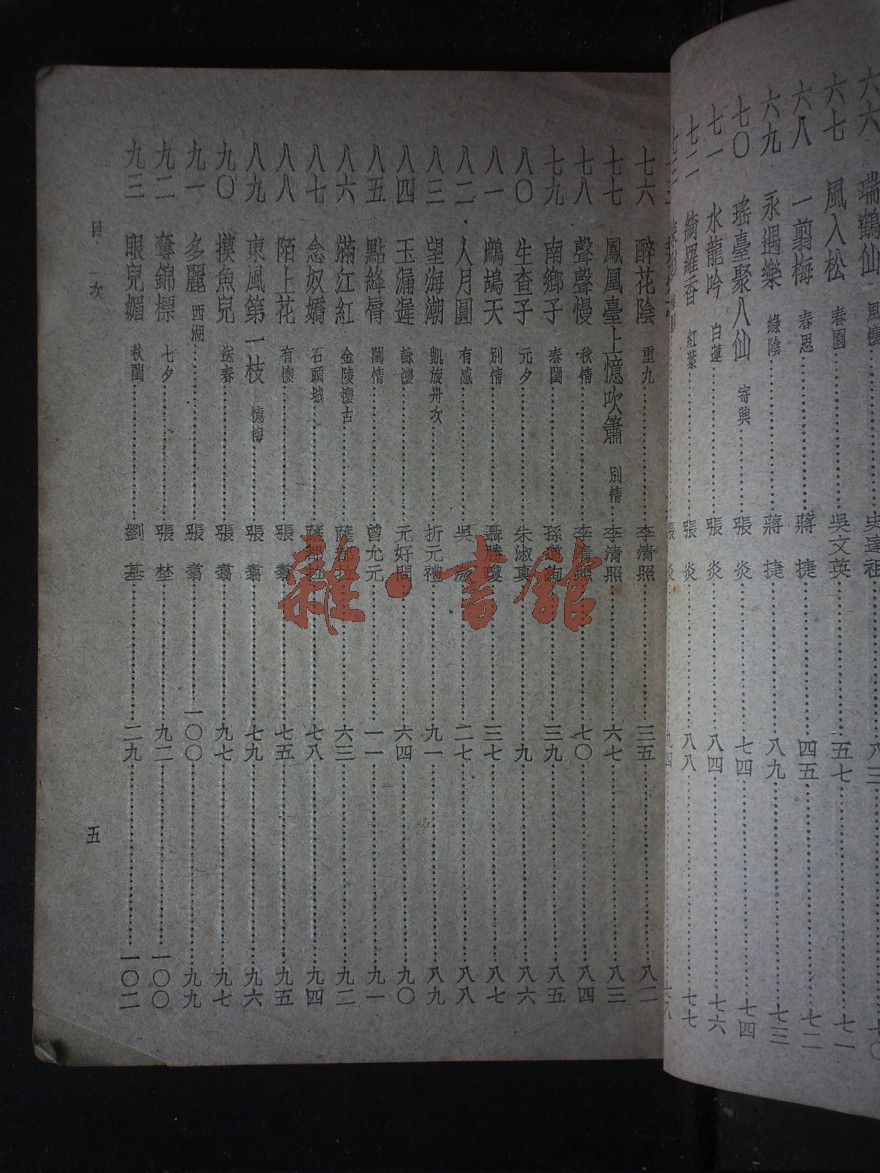 六六 瑞鶴仙 風懷 史達祖 八三 七〇
六七 風入松 春園 吳文英 五七 七一
六八 一翦梅 春思 蔣捷 四五 七二
六九 永遇樂 綠陰 蔣捷 八九 七三
七〇 瑤臺聚八仙 寄興 張炎 七四 七四
七一 水龍吟 白蓮 張炎 八四 七六
七二 綺羅香 紅葉 張炎 八八 七七
七六 醉花陰 重九 李清照 三五 八二
七七 鳳凰臺上憶吹簫 別情 李清照 六七 八三
七八 聲聲慢 秋情 李清照 七〇 八四
七九 南鄉子 春閨 孫 三九 八五
八〇 生查子 元夕 朱淑真 九 八六
八一 鷓鴣天 別情 聶勝瓊 三七 八七
八二 人月圓 有感 吳激 二七 八八
八三 望海潮 凱旋舟次 折元禮 九一 八九
八四 玉漏遲 詠懷 元好問 六四 九〇
八五 點絳脣 閨情 曾允元 一一 九一
八六 滿江紅 金陵懷古 薩都拉 六三 九二
八七 念奴嬌 石頭城 薩都拉 七八 九四
八八 陌上花 有懷 張翥 七五 九五
八九 東風第一枝 憶梅 張翥 七九 九六
九〇 摸魚兒 送春 張翥 九七 九七
九一 多麗 西湖 張翥 一〇〇 九九
九二 奪錦標 七夕 張埜 九二 一〇〇
九三 眼兒媚 秋閨 劉基 二九 一〇二
目次
五
雜·書館